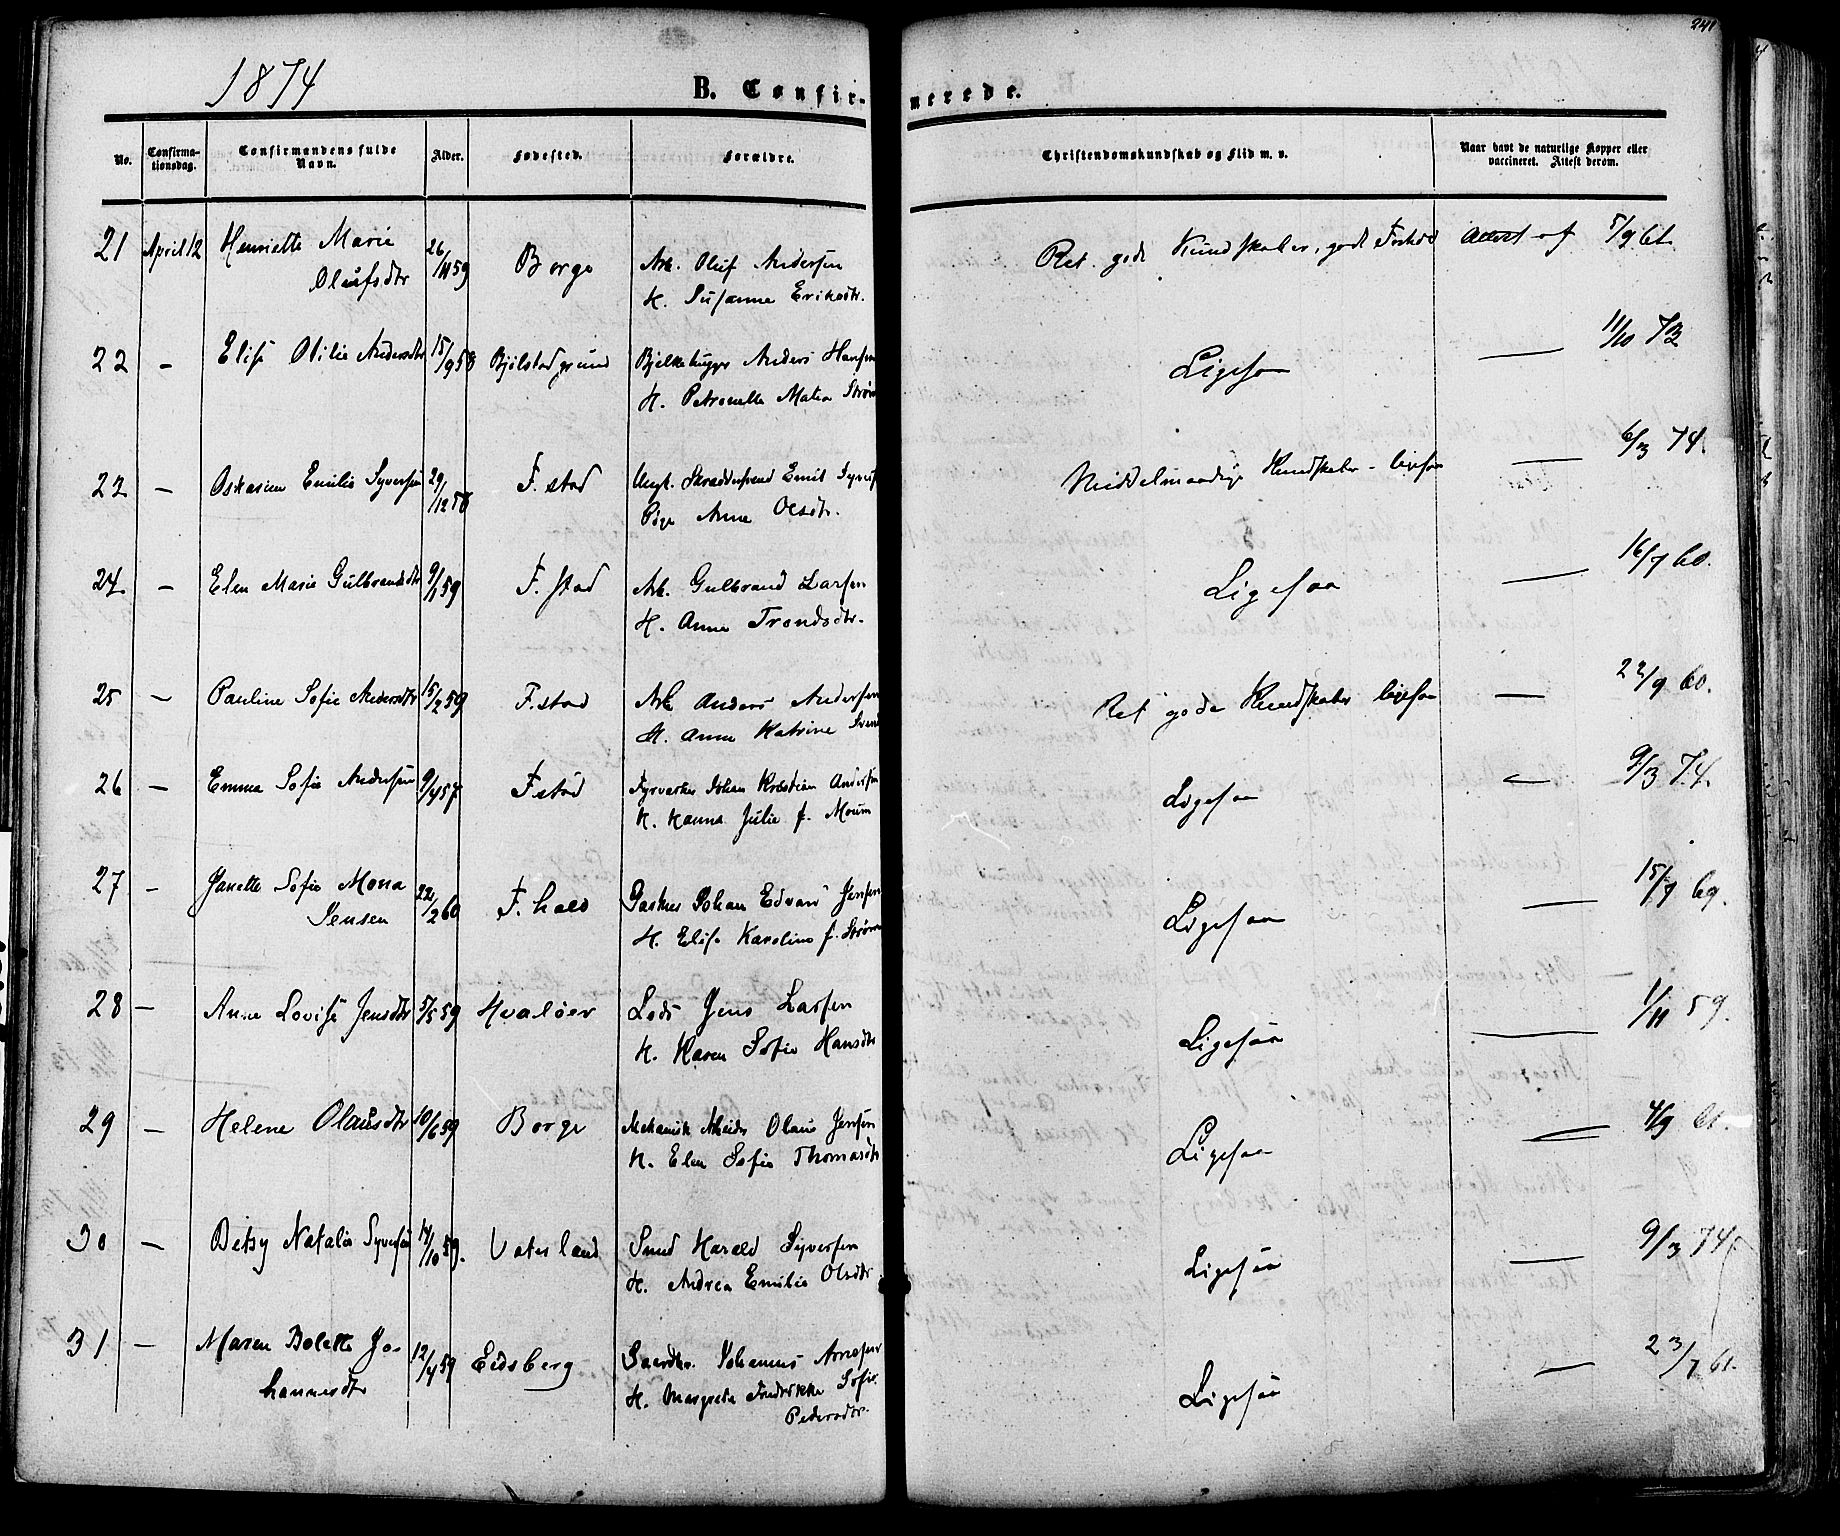 241
1874
B. Confirmerede.
No.
Confirmationsdag.
Confirmandens fulde Navn.
Alder.
Fødested.
Forældre.
Christendomskundskab og Flid m. v.
Naar havt de naturlige Kopper eller vaccineret. Attest derom.
21 April 12 Henriette Marie 26/11 59 Borge Arb. Oluf Andersen Ret gode Kundskaber, godt Forhold Attest af 5/9 61.
Olufsdtr K. Susanne Eriksdtr.
22 - Elise Otilie Andersdtr 15/9 58 Bjølstadgrund Bjelkehugger Anders Hansen Ligesaa — 11/10 73
H. Petronelle Matea Strøm
23 - Oskarine Emilie Syversen 29/12 58 F. stad Ungk. Skræddersvend Emil Syvers Middelmaadige Kundskaber - ligesaa — 6/3 74.
Pige Anne Olsdtr.
24 - Elen Marie Gulbrandsdtr 9/1 59 F. stad Arb. Gulbrand Larsen Ligesaa — 16/7 60.
H. Anne Trondsdtr.
25 - Pauline Sofie Andersdtr 15/2 59 F. stad Arb Anders Andersen Ret gode Kundskaber ligesaa — 22/9 60.
H. Anne Katrine Svend
26 - Emma Sofie Andersen 9/4 57 F stad Fyrværker Johan Kristian Andersen Ligesaa — 9/3 74.
K. Hanna Julie f. Moum
27 - Janette Sofie Mona 22/2 60 F. hald Johan Edvard Jensen Ligesaa — 15/7 69.
Jensen H. Elise Karoline f. Strøm
28 - Anne Lovise Jensdtr 5/5 59 Hvaløer Lods Jens Larsen Ligesaa — 1/11 59.
K. Karen Sofie Hansdtr
29 - Helene Olausdtr 10/6 59 Borge Mekanisk Arbeider Olaus Jensen Ligesaa — 4/9 61.
K. Elen Sofie Thomasdtr
30 - Betsy Natalia Syversen 14/10 59. Vaterland Smed Harald Syversen Ligesaa — 9/3 74
H. Andrea Emilie Olsdtr
31 - Maren Bolette Jo- 12/4 59 Eidsberg Gaardbr. Johannes Arnesen Ligesaa — 23/7 61.
hannesdtr H. Margrete Fredrikke Sofie
Pedersdtr.